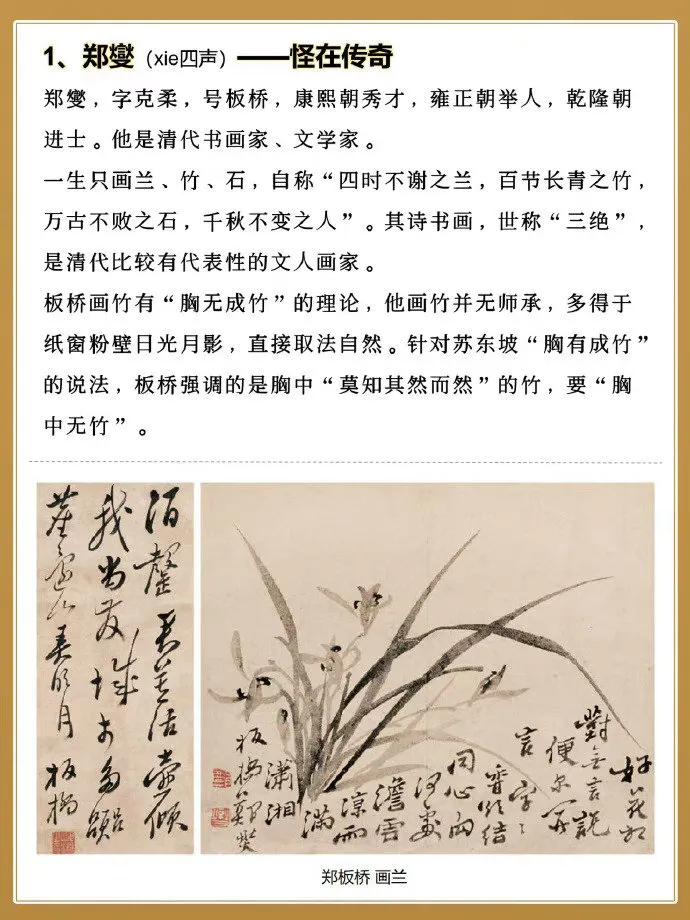 1、郑燮（xie四声）——怪在传奇
郑燮，字克柔，号板桥，康熙朝秀才，雍正朝举人，乾隆朝
进士。他是清代书画家、文学家。
一生只画兰、竹、石，自称“四时不谢之兰，百节长青之竹，
万古不败之石，千秋不变之人”。其诗书画，世称“三绝”，
是清代比较有代表性的文人画家。
板桥画竹有“胸无成竹”的理论，他画竹并无师承，多得于
纸窗粉壁日光月影，直接取法自然。针对苏东坡“胸有成竹”
的说法，板桥强调的是胸中“莫知其然而然”的竹，要“胸
中无竹”。
板桥
對無言說
便尔开
言字
同心向
澹雲
涼雨
滿
瀟湘
板橋鄭燮
郑板桥 画兰